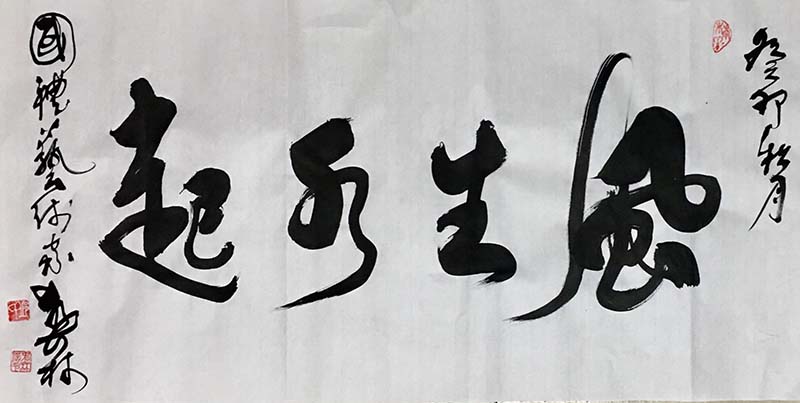 癸卯秋月
風生水起
國禮藝術家